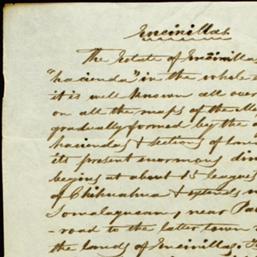 Encinillas
The Estate of Encinillas
"hacienda" in the whole
it is well known all over
on all the maps of the
gradually formed by the
haciendas & sections of
its present enormous
begins at about 15 leagues
of Chihuahua & extends
near
road to the latter town
the lands of Encinillas